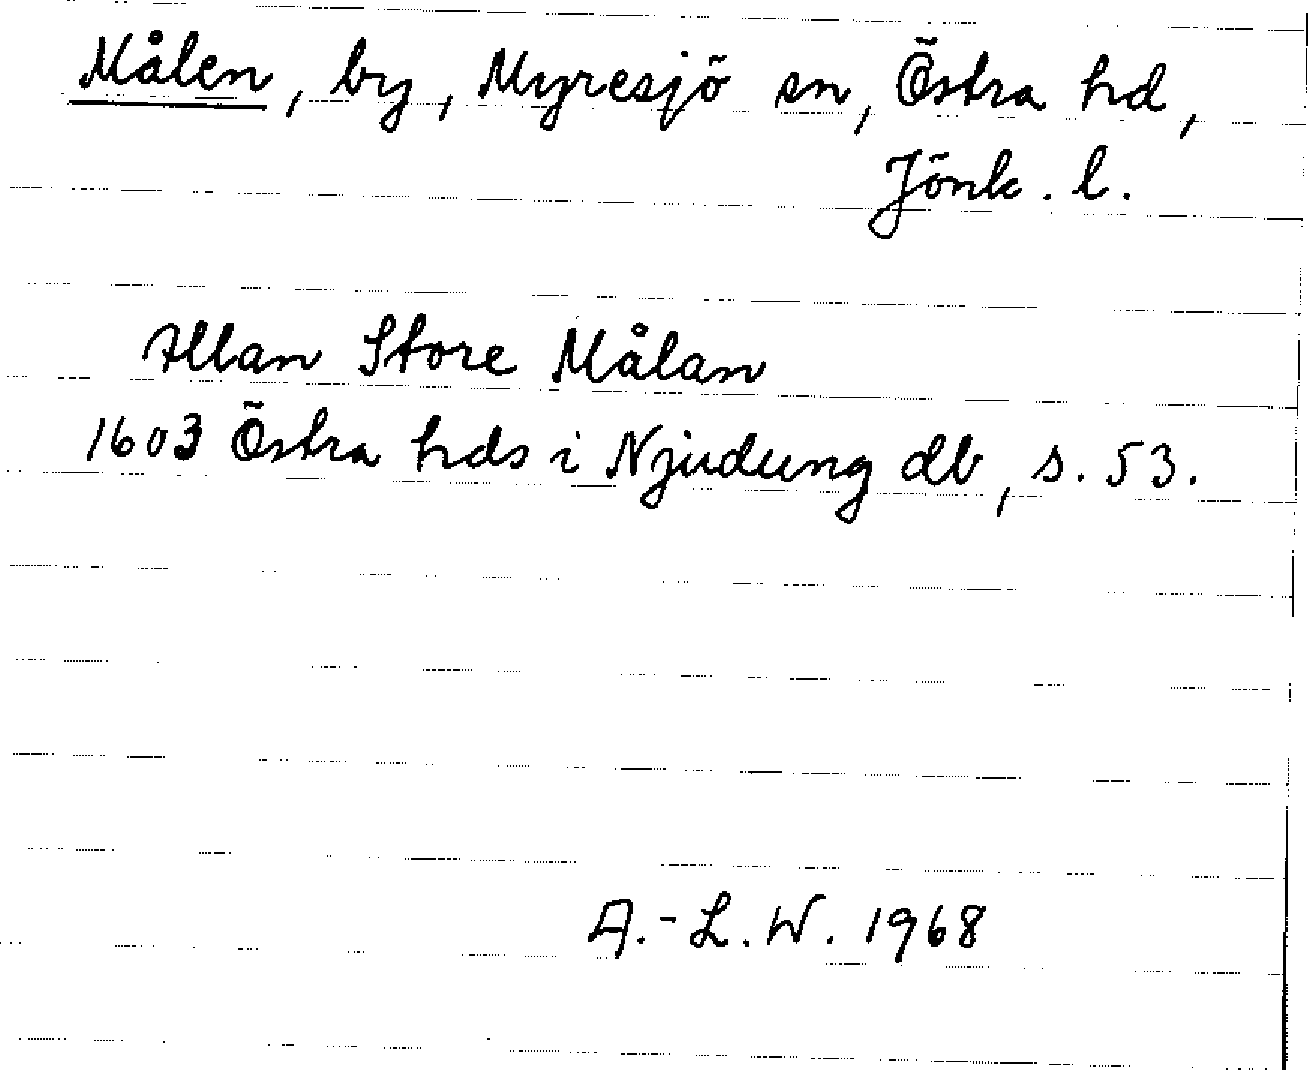 Målen, by, Myresjö sn, Östra hd,
Jönk. l.
Allan Store Målan
1603 Östra hds i Njudung db, s. 53.
A.-L.W. 1968